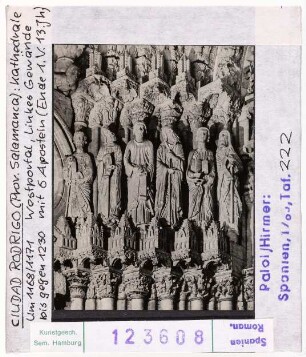 CIUDAD RODRIGO (Prov. Salamanca): Kathedrale
Um 1168/1171 Westportal, Linkes Gewände
bis gegen 1230 mit 6 Aposteln (Ende 1.V.13.Jh)
Palol/Hirmer:
Spanien, Taf. 222
Kunstgesch.
Sem. Hamburg
123608
Spanien
Roman.